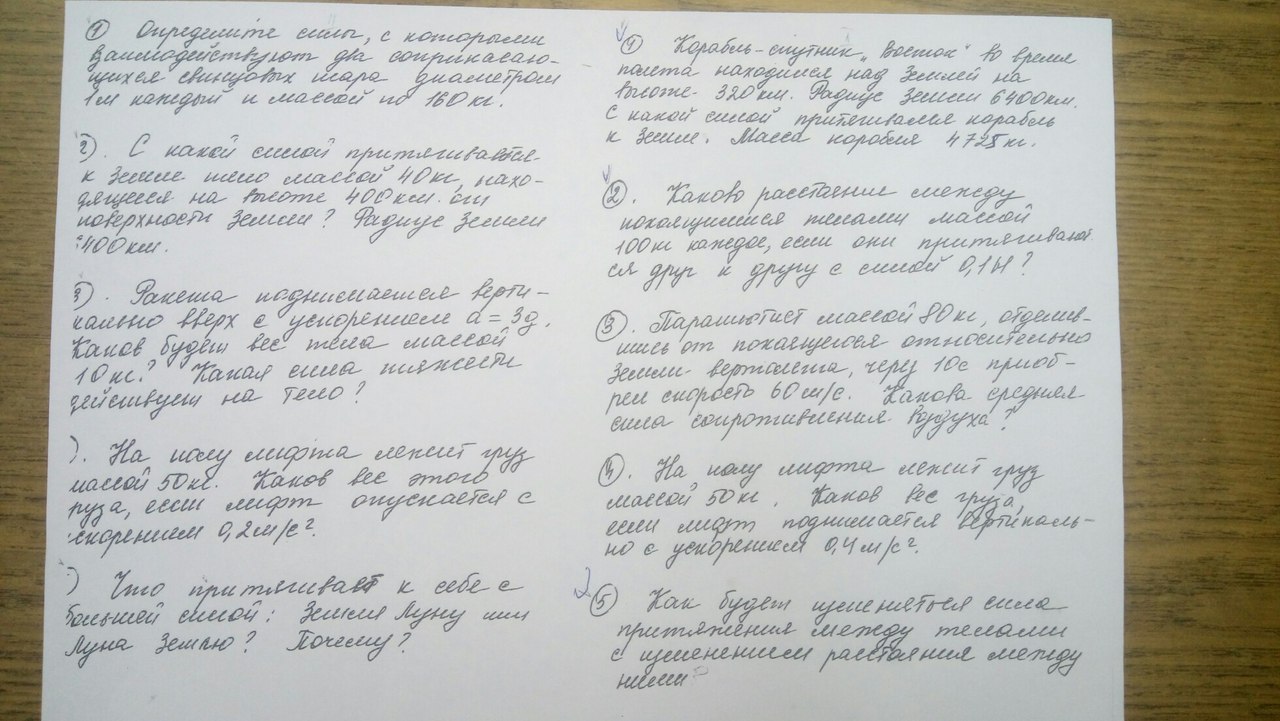 ① Определите силы, с которыми
взаимодействуют два соприкасаю-
щихся свинцовых шара диаметром
1м каждый и массой по 160 кг.
2). С какой силой притягивается
к Земле тело массой 40 кг, нахо-
дящееся на высоте 400 км от
поверхности Земли? Радиус Земли
400 км.
3). Ракета поднимается верти-
кально вверх с ускорением a = 3g.
Каков будет вес тела массой
10 кг? Какая сила тяжести
действует на тело?
). На полу лифта лежит груз
массой 50 кг. Каков вес этого
груза, если лифт опускается с
скорением 0,2 м/с².
) Что притягивает к себе с
большей силой: Земля Луну или
Луна Землю? Почему?
① Корабль-спутник „Восток" во время
полета находился над Землей на
высоте 320 км. Радиус Земли 6400 км.
С какой силой притягивался корабль
к Земле. Масса корабля 4725 кг.
②. Каково расстояние между
покоящимися телами массой
100 кг каждое, если они притягивают
ся друг к другу с силой 0,1 Н?
③. Парашютист массой 80 кг, отделив-
шись от покоящегося относительно
Земли вертолета, через 10 с приоб-
рел скорость 60 м/с. Какова средняя
сила сопротивления воздуха?
④. На полу лифта лежит груз
массой 50 кг. Каков вес груза,
если лифт поднимается вертикаль-
но с ускорением 0,4 м/с².
⑤ Как будет изменяться сила
притяжения между телами
с изменением расстояния между
ними?